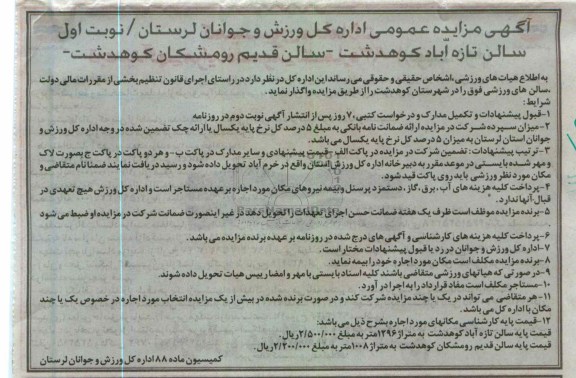 آگهی مزایده عمومی اداره کل ورزش و جوانان لرستان / نوبت اول
سالن تازه آباد کوهدشت -سالن قدیم رومشکان کوهدشت-
به اطلاع هیات های ورزشی، اشخاص حقیقی و حقوقی می رساند این اداره کل در نظر دارد در راستای اجرای قانون تنظیم بخشی از مقررات مالی دولت
،سالن های ورزشی فوق را در شهرستان کوهدشت را از طریق مزایده واگذار نماید.
شرایط:
۱-قبول پیشنهادات و تکمیل مدارک و درخواست کتبی، ۷ روز پس از انتشار آگهی نوبت دوم در روزنامه
۲-میزان سپرده شرکت در مزایده ارائه ضمانت نامه بانکی به مبلغ ۵ درصد کل نرخ پایه یکسال یا ارائه چک تضمین شده در وجه اداره کل ورزش و
جوانان استان لرستان به میزان ۵ درصد کل نرخ پایه یکسال می باشد.
۳-ترتیب پیشنهادات: تضمین شرکت در مزایده در پاکت الف -قیمت پیشنهادی و سایر مدارک در پاکت ب- و هر دو پاکت در پاکت ج بصورت لاک
و مهر شده بایستی در موعد مقرر به دبیرخانه اداره کل ورزش استان واقع در خرم آباد تحویل داده شود و رسید دریافت نمایند ضمنا نام متقاضی و
مکان مورد نظر ورزشی باید روی پاکت قید شود.
۴-پرداخت کلیه هزینه های آب، برق، گاز، دستمزد پرسنل و بیمه نیروهای مکان مورد اجاره بر عهده مستاجر است و اداره کل ورزش هیچ تعهدی در
قبال آنها ندارد.
۵-برنده مزایده موظف است ظرف یک هفته ضمانت حسن اجرای تعهدات را تحویل دهد در غیر اینصورت ضمانت شرکت در مزایده او ضبط می شود
۶-پرداخت کلیه هزینه های کارشناسی و آگهی های درج شده در روزنامه بر عهده برنده مزایده می باشد.
۷-اداره کل ورزش و جوانان در رد یا قبول پیشنهادات مختار است.
۸-برنده مزایده مکلف است مکان مورد اجاره خود را بیمه نماید.
۹-در صورتی که هیاتهای ورزشی متقاضی باشند کلیه اسناد بایستی با مهر و امضار رییس هیات تحویل داده شوند.
۱۰-مستاجر مکلف است مفاد قرارداد را به اجرا در آورد.
۱۱-هر متقاضی می تواند در یک یا چند مزایده شرکت کند و در صورت برنده شده در بیش از یک مزایده انتخاب مورد اجاره در خصوص یک یا چند
مکان با اداره کل می باشد.
۱۲-قیمت پایه کارشناسی مکانهای مورد اجاره بشرح ذیل می باشد:
قیمت پایه سالن تازه آباد کوهدشت به متراژ ۱۳۹۶متر به مبلغ ۲/۵۰۰/۰۰۰ریال.
قیمت پایه سالن قدیم رومشکان کوهدشت به متراژ ۱۰۰۸متر به مبلغ ۲/۲۰۰/۰۰۰ریال.
کمیسیون ماده ۸۸ اداره کل ورزش و جوانان لرستان